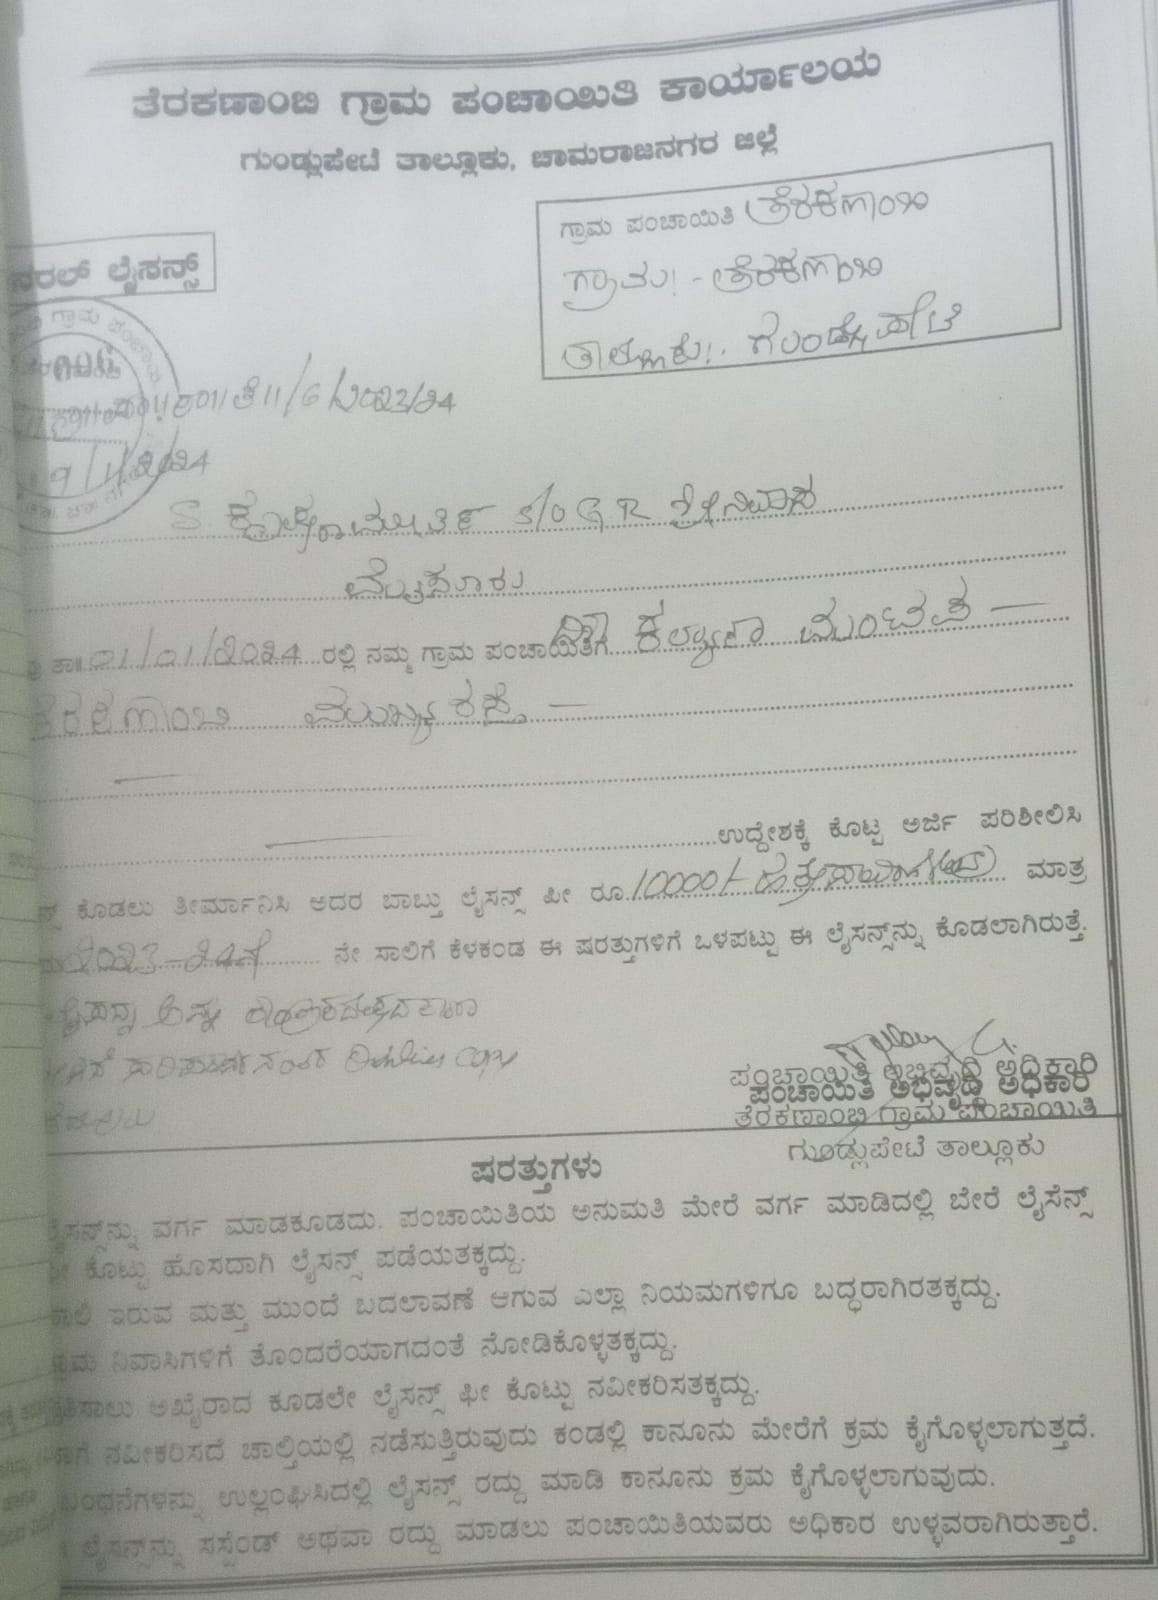 ತೆರಕಣಾಂಬಿ ಗ್ರಾಮ ಪಂಚಾಯಿತಿ ಕಾರ್ಯಾಲಯ
ಗುಂಡ್ಲುಪೇಟೆ ತಾಲ್ಲೂಕು, ಚಾಮರಾಜನಗರ ಜಿಲ್ಲೆ
ಗ್ರಾಮ ಪಂಚಾಯಿತಿ ತೆರಕಣಾಂಬಿ
ಗ್ರಾಮ:- ತೆರಕಣಾಂಬಿ
ತಾಲ್ಲೂಕು:. ಗುಂಡ್ಲುಪೇಟೆ
ನರಲ್ ಲೈಸನ್ಸ್
/6/2023/24
9/1/2024
S/O G R ಶ್ರೀನಿವಾಸ
ಮೈಸೂರು
ತಾ॥01/01/2024 ರಲ್ಲಿ ನಮ್ಮ ಗ್ರಾಮ ಪಂಚಾಯಿತಿಗೆ ಕಲ್ಯಾಣ ಮಂಟಪ —
ತೆರಕಣಾಂಬಿ ಮುಖ್ಯ ರಸ್ತೆ —
ಉದ್ದೇಶಕ್ಕೆ ಕೊಟ್ಟ ಅರ್ಜಿ ಪರಿಶೀಲಿಸಿ
ನ್ಸ್ ಕೊಡಲು ತೀರ್ಮಾನಿಸಿ ಅದರ ಬಾಬ್ತು ಲೈಸನ್ಸ್ ಫೀ ರೂ 10000/- ಮಾತ್ರ
2023-24 ನೇ ಸಾಲಿಗೆ ಕೆಳಕಂಡ ಈ ಷರತ್ತುಗಳಿಗೆ ಒಳಪಟ್ಟು ಈ ಲೈಸನ್ಸ್‌ನ್ನು ಕೊಡಲಾಗಿರುತ್ತೆ.
ಪಂಚಾಯಿತಿ ಅಭಿವೃದ್ಧಿ ಅಧಿಕಾರಿ
ಪಂಚಾಯಿತಿ ಅಭಿವೃದ್ಧಿ ಅಧಿಕಾರಿ
ತೆರಕಣಾಂಬಿ ಗ್ರಾಮ ಪಂಚಾಯಿತಿ
ಗುಂಡ್ಲುಪೇಟೆ ತಾಲ್ಲೂಕು
ಷರತ್ತುಗಳು
ಲೈಸನ್ಸ್‌ನ್ನು ವರ್ಗ ಮಾಡಕೂಡದು. ಪಂಚಾಯಿತಿಯ ಅನುಮತಿ ಮೇರೆ ವರ್ಗ ಮಾಡಿದಲ್ಲಿ ಬೇರೆ ಲೈಸೆನ್ಸ್
ಫೀ ಕೊಟ್ಟು ಹೊಸದಾಗಿ ಲೈಸನ್ಸ್ ಪಡೆಯತಕ್ಕದ್ದು.
ಹಾಲಿ ಇರುವ ಮತ್ತು ಮುಂದೆ ಬದಲಾವಣೆ ಆಗುವ ಎಲ್ಲಾ ನಿಯಮಗಳಿಗೂ ಬದ್ಧರಾಗಿರತಕ್ಕದ್ದು.
ಗ್ರಾಮ ನಿವಾಸಿಗಳಿಗೆ ತೊಂದರೆಯಾಗದಂತೆ ನೋಡಿಕೊಳ್ಳತಕ್ಕದ್ದು.
ಸಾಲು ಅಖೈರಾದ ಕೂಡಲೇ ಲೈಸನ್ಸ್ ಫೀ ಕೊಟ್ಟು ನವೀಕರಿಸತಕ್ಕದ್ದು.
ನವೀಕರಿಸದೆ ಚಾಲ್ತಿಯಲ್ಲಿ ನಡೆಸುತ್ತಿರುವುದು ಕಂಡಲ್ಲಿ ಕಾನೂನು ಮೇರೆಗೆ ಕ್ರಮ ಕೈಗೊಳ್ಳಲಾಗುತ್ತದೆ.
ಬಂಧನೆಗಳನ್ನು ಉಲ್ಲಂಘಿಸಿದಲ್ಲಿ ಲೈಸನ್ಸ್ ರದ್ದು ಮಾಡಿ ಕಾನೂನು ಕ್ರಮ ಕೈಗೊಳ್ಳಲಾಗುವುದು.
ಲೈಸನ್ಸ್‌ನ್ನು ಸಸ್ಪೆಂಡ್ ಅಥವಾ ರದ್ದು ಮಾಡಲು ಪಂಚಾಯಿತಿಯವರು ಅಧಿಕಾರ ಉಳ್ಳವರಾಗಿರುತ್ತಾರೆ.